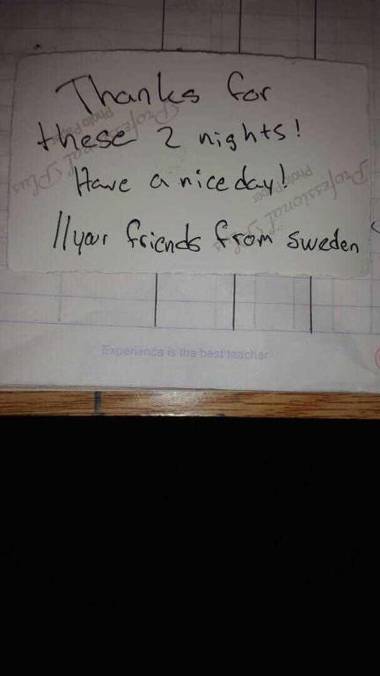 Thanks for
these 2 nights!
Have a nice day!
//your friends from sweden
Professional Plus
Photo Paper
Professional Plus
Photo Paper
Experience is the best teacher